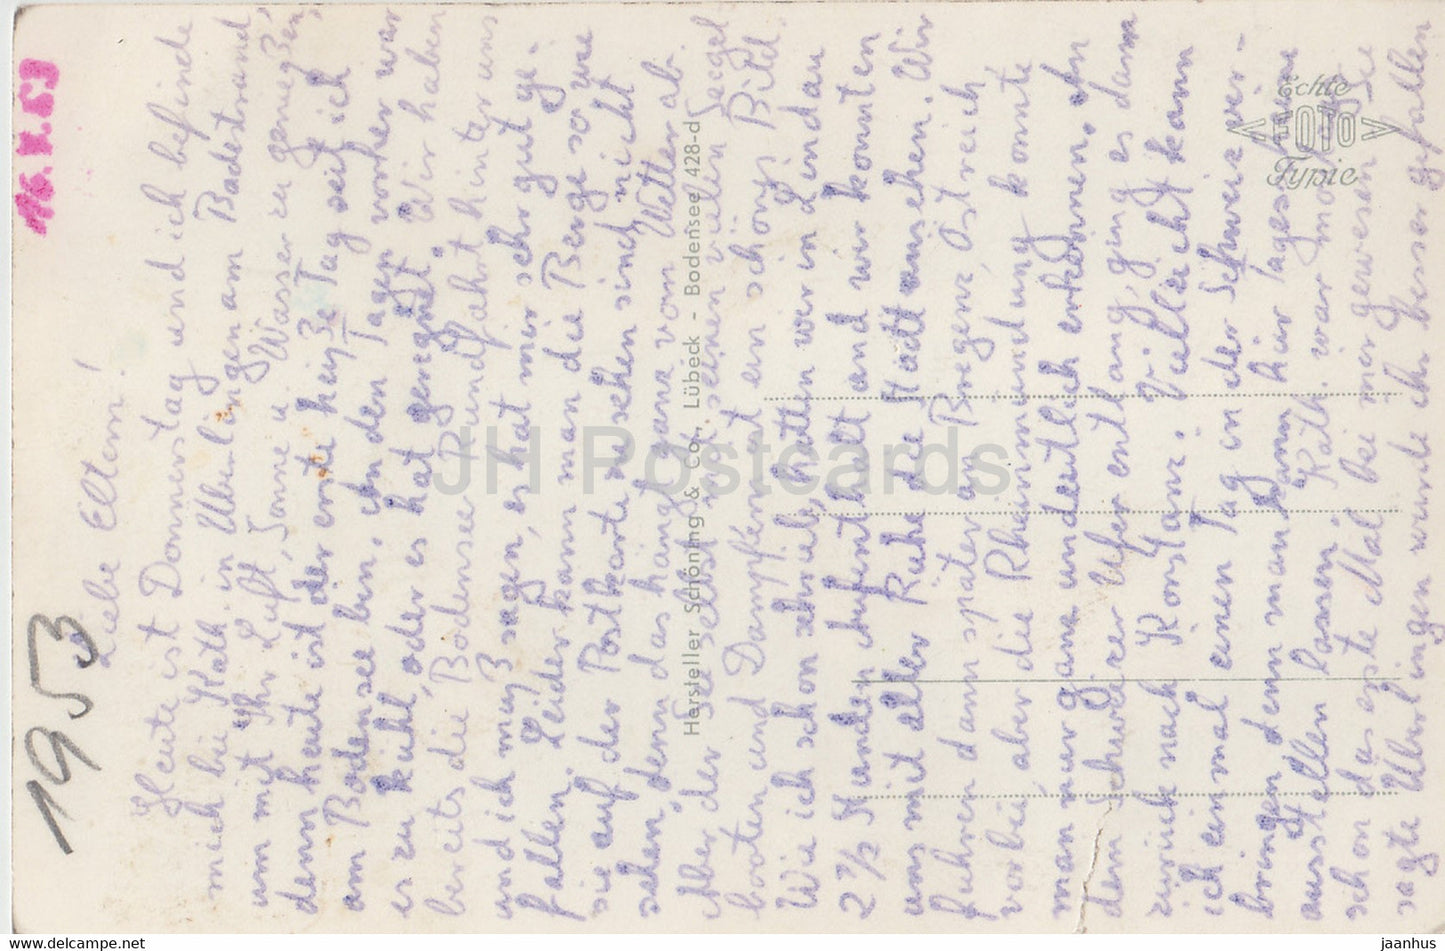 1953
16.IX.53
Liebe Eltern!
Heute ist Donnerstag und ich befinde
mich bei Käth in Überlingen am Badestrand
um mit Ihr Luft, Sonne u. Wasser zu genießen,
denn heute ist der erste heiße Tag seit ich
am Bodensee bin. An den Tagen vorher war
es zu kühl, oder es hat geregnet. Wir haben
bereits die Bodensee Rundfahrt hinter uns
und ich muß sagen, es hat mir sehr gut ge-
fallen. Leider kann man die Berge so wie
sie auf der Postkarte zu sehen sind nicht
sehen, denn das hängt ganz vom Wetter ab.
Aber der See selbst mit seinen vielen Segel
booten und Dampfern ist ein schönes Bild.
Wie ich schon schrieb, hatten wir in Lindau
2 1/2 Stunden Aufenthalt und wir konnten
uns mit aller Ruhe die Stadt ansehen. Wir
fuhren dann später an Bregenz, Östreich
vorbei, aber die Rheinmündung konnte
man nur ganz undeutlich erkennen. An
dem Schweizer Ufer entlang, ging es dann
zurück nach Konstanz. Vielleicht kann
ich einmal einen Tag in der Schweiz ver-
bringen denn man kann hier Tagespässe
ausstellen lassen. Käth. war
schon das erste Mal bei mir gewesen. Sie
sagte Überlingen würde ihr besser gefallen
Hersteller Schöning & Co., Lübeck - Bodensee 428-d
Echte
FOTO
Typie
JH Postcards
www.delcampe.net
jaanhus